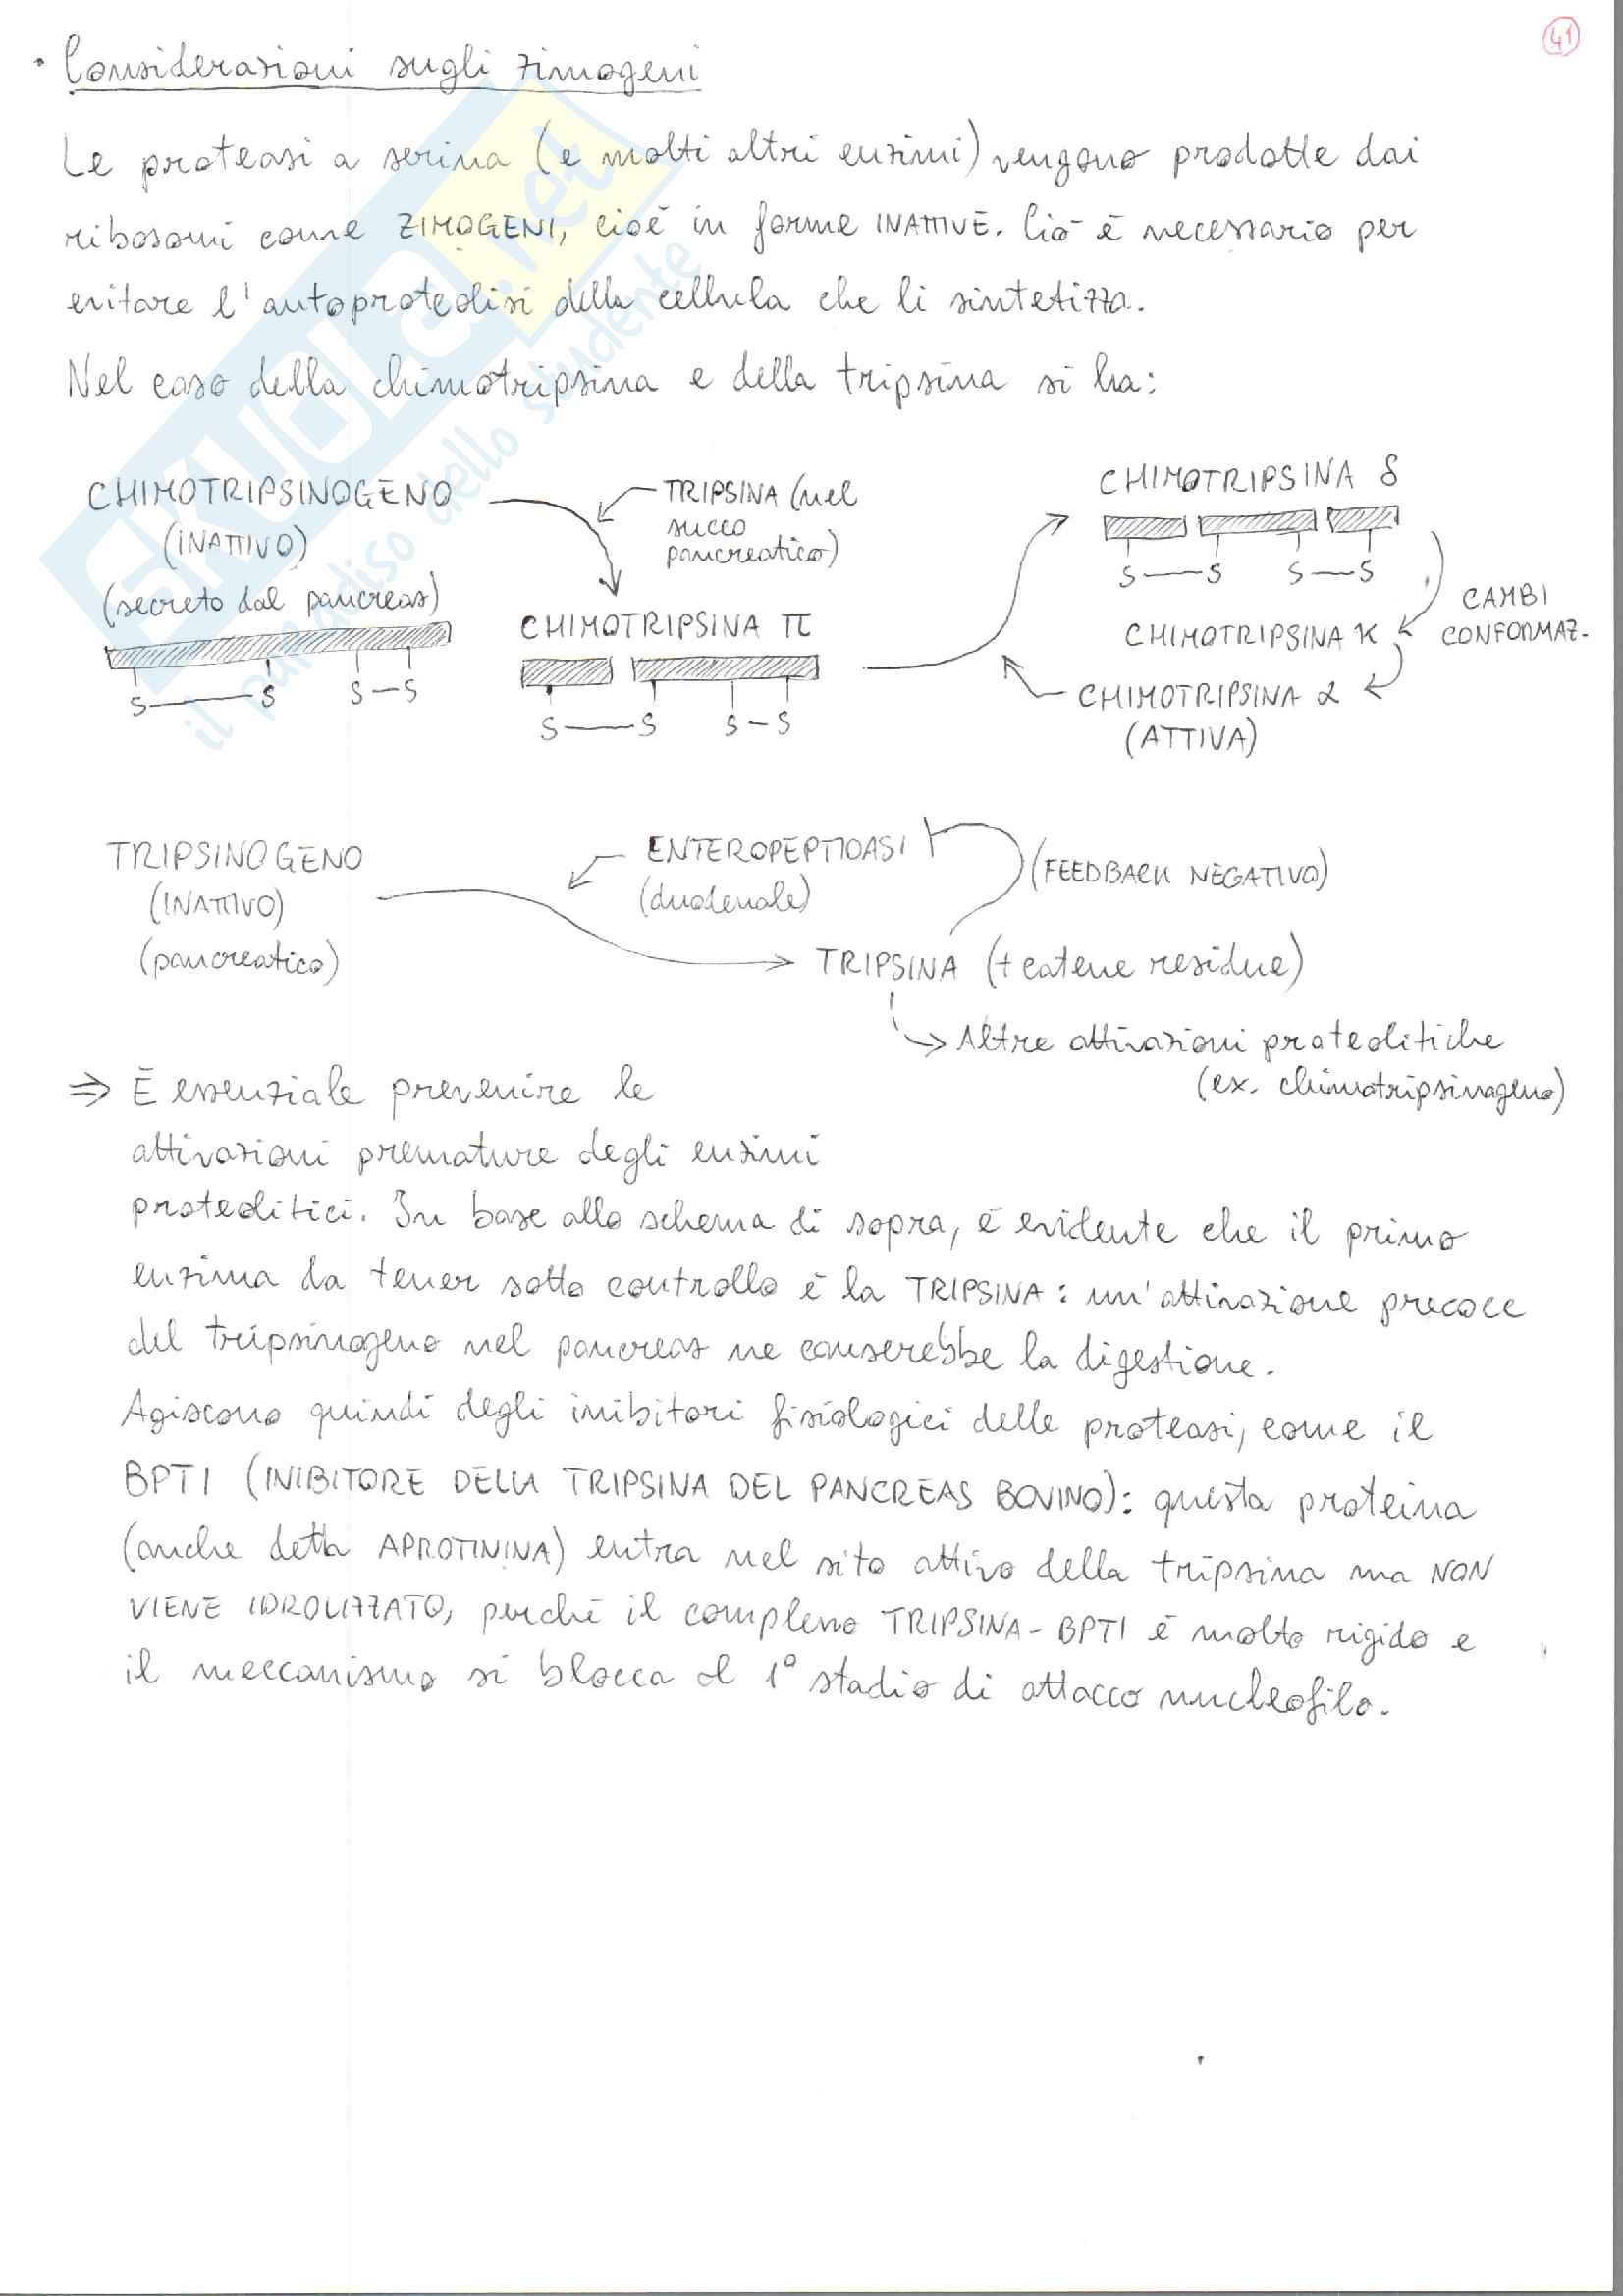 41
· Considerazioni sugli zimogeni
Le proteasi a serina (e molti altri enzimi) vengono prodotte dai
ribosomi come ZIMOGENI, cioè in forme INATTIVE. Ciò è necessario per
evitare l'autoproteolisi della cellula che li sintetizza.
Nel caso della chimotripsina e della tripsina si ha:
CHIMOTRIPSINOGENO
(INATTIVO)
(secreto dal pancreas)
S S S-S
TRIPSINA (nel
succo
pancreatico)
CHIMOTRIPSINA π
S S S-S
CHIMOTRIPSINA δ
S S S-S
CAMBI
CONFORMAZ.
CHIMOTRIPSINA K
CHIMOTRIPSINA α
(ATTIVA)
TRIPSINOGENO
(INATTIVO)
(pancreatico)
ENTEROPEPTIDASI
(duodenale)
(FEEDBACK NEGATIVO)
TRIPSINA (+ catene residue)
Altre attivazioni proteolitiche
(ex. chimotripsinogeno)
⇒ È essenziale prevenire le
attivazioni premature degli enzimi
proteolitici. In base allo schema di sopra, è evidente che il primo
enzima da tener sotto controllo è la TRIPSINA: un'attivazione precoce
del tripsinogeno nel pancreas ne causerebbe la digestione.
Agiscono quindi degli inibitori fisiologici delle proteasi, come il
BPTI (INIBITORE DELLA TRIPSINA DEL PANCREAS BOVINO): questa proteina
(anche detta APROTININA) entra nel sito attivo della tripsina ma NON
VIENE IDROLIZZATO, perché il complesso TRIPSINA-BPTI è molto rigido e
il meccanismo si blocca al 1° stadio di attacco nucleofilo.
SKUOLA.net
il paradiso dello studente